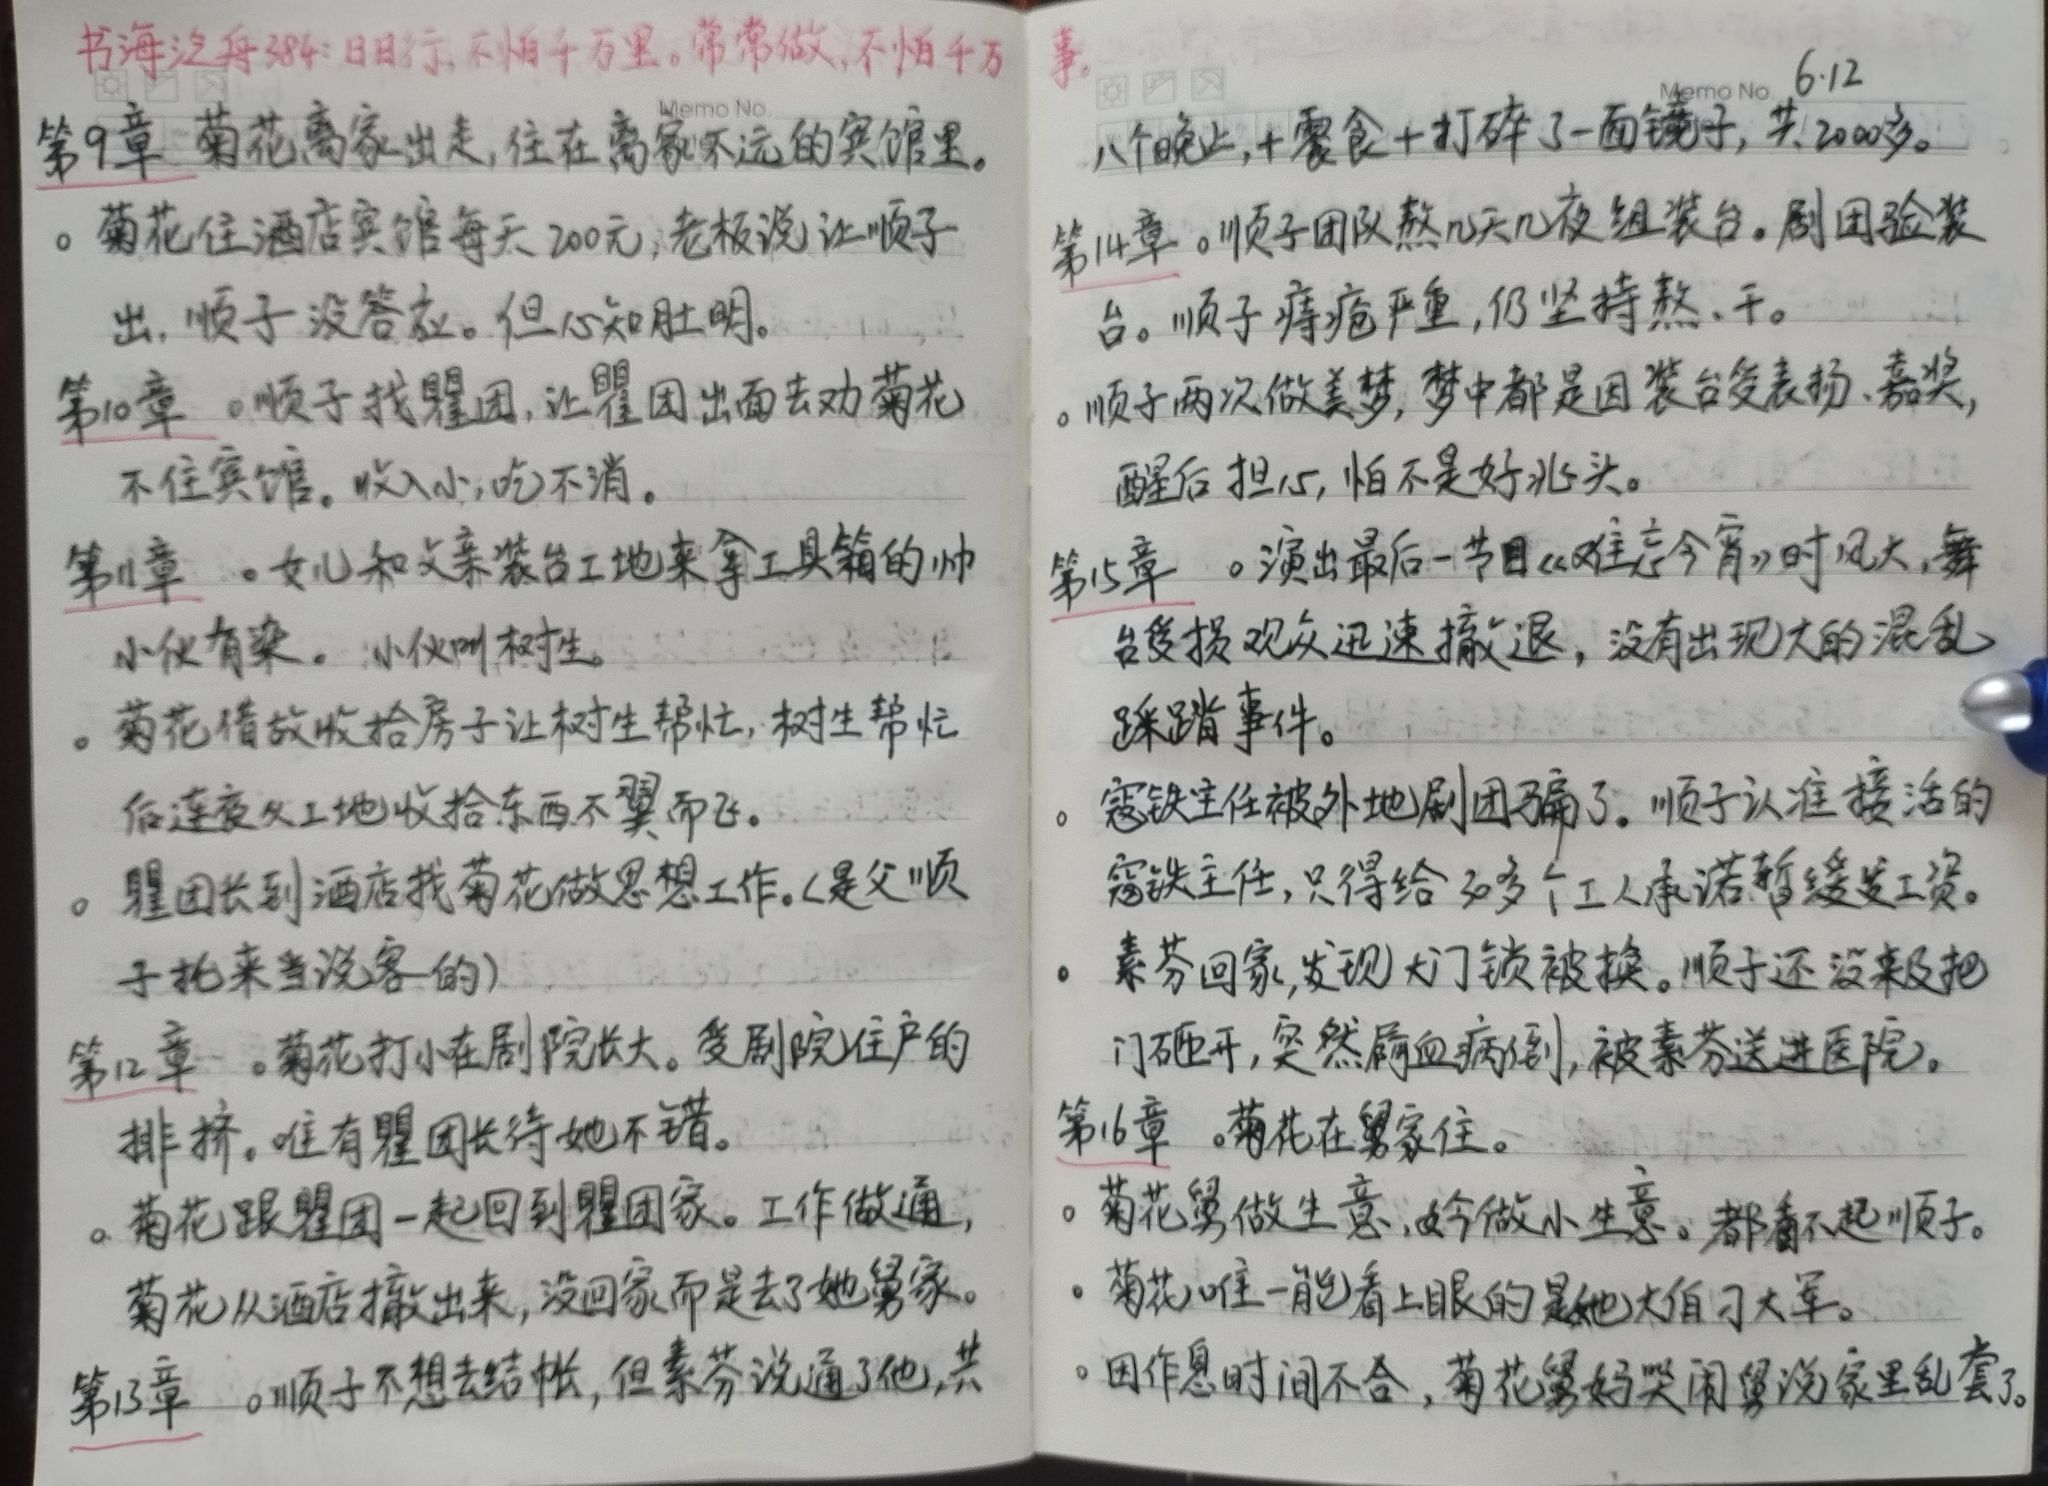 书海泛舟384：日日行，不怕千万里。常常做，不怕千万
事。
Memo No.
第9章 菊花离家出走，住在离家不远的宾馆里。
。菊花住酒店宾馆每天200元，老板说让顺子
出，顺子没答应。但心知肚明。
第10章 。顺子找瞿团，让瞿团出面去劝菊花
不住宾馆。收入小，吃不消。
第11章 。女儿和父亲装台工地来拿工具箱的帅
小伙有染。小伙叫树生。
。菊花借故收拾房子让树生帮忙，树生帮忙
后连夜从工地收拾东西不翼而飞。
。瞿团长到酒店找菊花做思想工作。（是父顺
子托来当说客的）
第12章 。菊花打小在剧院长大。受剧院住户的
排挤。唯有瞿团长待她不错。
。菊花跟瞿团一起回到瞿团家。工作做通，
菊花从酒店撤出来，没回家而是去了她舅家。
第13章 。顺子不想去结帐，但素芬说通了他，共
Memo No. 6.12
八个晚上，+零食+打碎了一面镜子，共2000多。
第14章 。顺子团队熬几天几夜组装台。剧团验装
台。顺子痔疮严重，仍坚持熬、干。
。顺子两次做美梦，梦中都是因装台受表扬、嘉奖，
醒后担心，怕不是好兆头。
第15章 。演出最后一节目《难忘今宵》时风大，舞
台受损观众迅速撤退，没有出现大的混乱
踩踏事件。
。寇铁主任被外地剧团骗了。顺子认准接活的
寇铁主任，只得给30多个工人承诺暂缓发工资。
。素芬回家，发现大门锁被换。顺子还没来及把
门砸开，突然脑血病倒，被素芬送进医院。
第16章 。菊花在舅家住。
。菊花舅做生意，妗做小生意。都看不起顺子。
。菊花唯一能看上眼的是她大伯刁大军。
。因作息时间不合，菊花舅妈哭闹舅说家里乱套了。